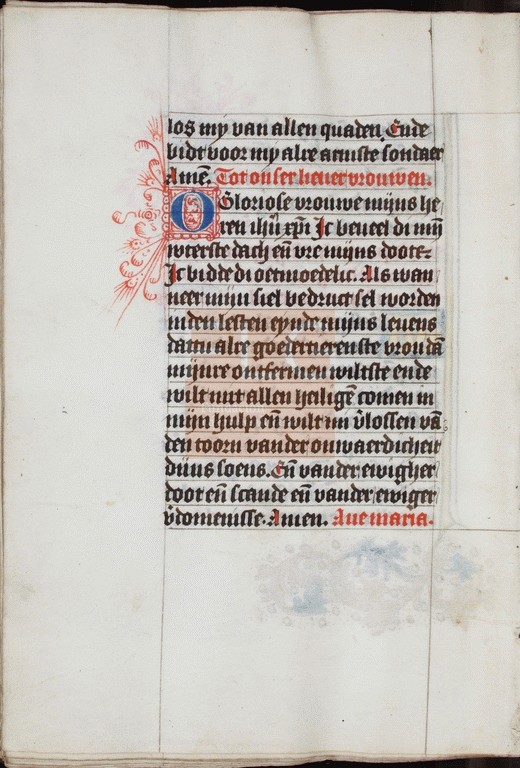 los my van allen quaden. Ende
bidt voor my alre armste sondaer
Amē. Tot onser liever vrouwen.
O Gloriose vrouwe mijns he
ren ihū xpī Ic beveel di mijn
wterste dach eñ vre mijns doots
Ic bidde di oetmoedelic. Als wan
neer mijn siel bedruct sel worden
in den lesten eynde mijns levens
dattu alre goedertierenste vrou dā
mijnre ontfermen wiltste ende
wilt mit allen heiligē comen in
mijn hulp eñ wilt mi v̄lossen vā
den toorn van der onwaerdicheit
dijns soens. Eñ van der ewigher
doot eñ scande eñ van der ewiger
v̄domenisse. Amen. Ave maria.